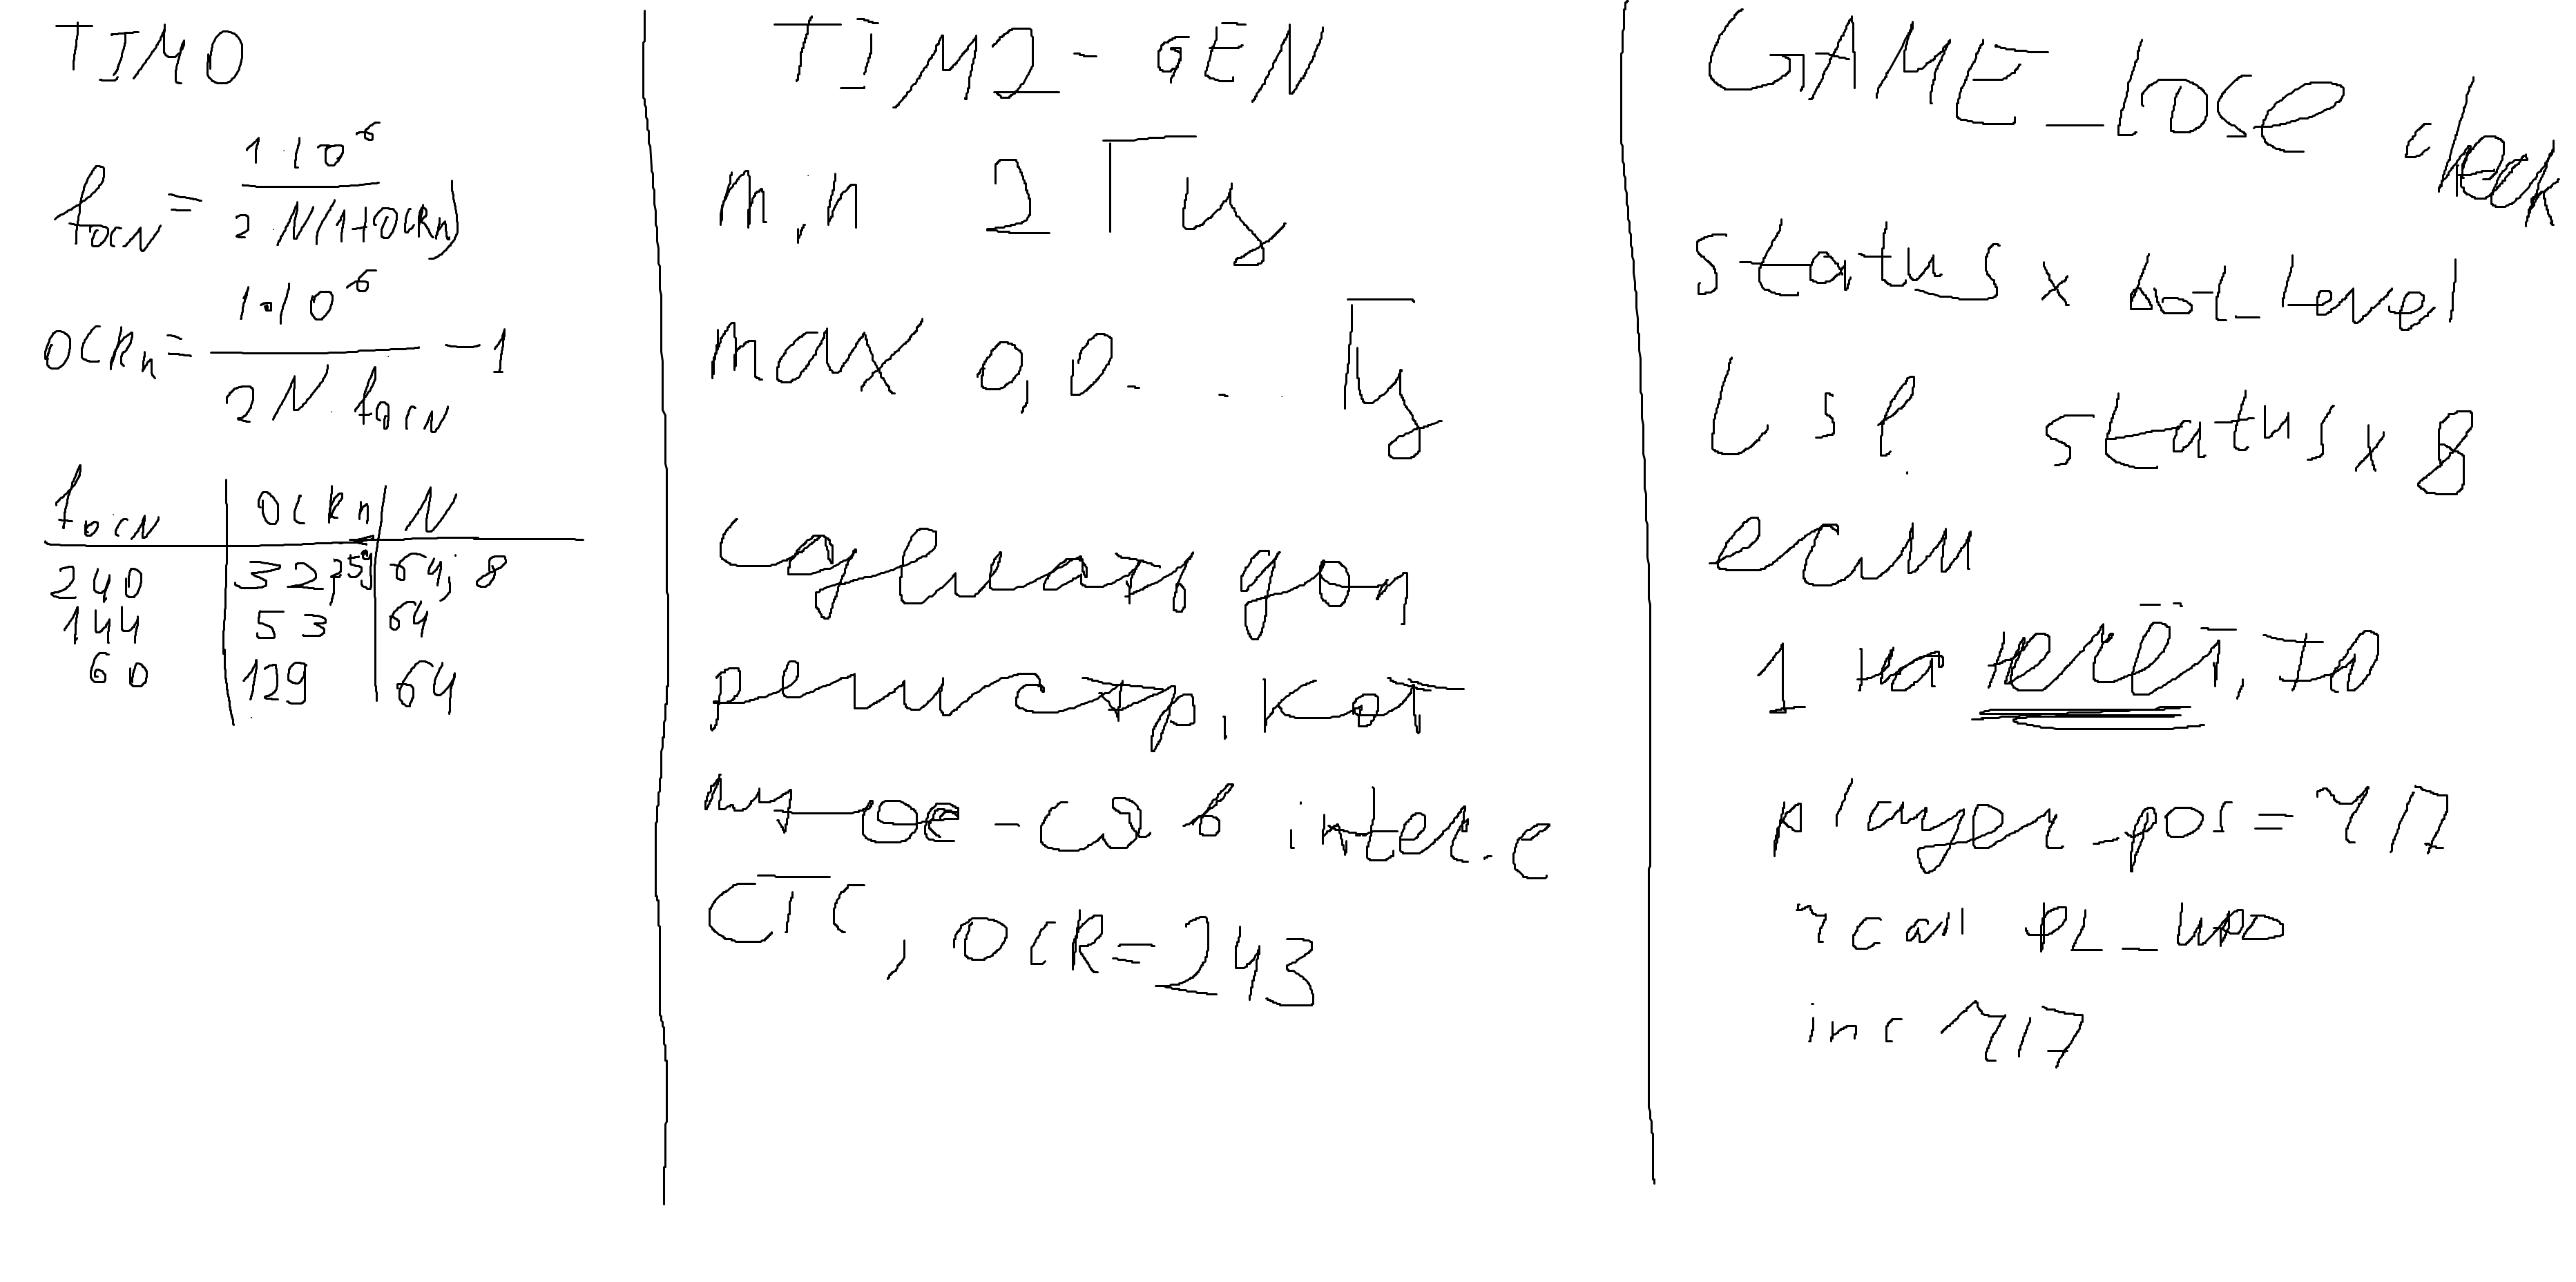 TIM0
fOCN = 1·10^6
2·N(1+OCRn)
OCRn = 1·10^6 / 2·N·fOCN - 1
fOCN | OCRn | N
240 | 32, 259 | 64; 8
144 | 53 | 64
60 | 129 | 64
TIM2 - GEN
min 2 Гц
max 0,0. . . Гц
сделать доп
регистр, кот
-ся в inter.е
CTC, OCR=243
GAME_lose check
status x bot_Level
Lsl status x 8
если
1 на нечёт, то
player_pos = r17
rcall PL_UPD
inc r17